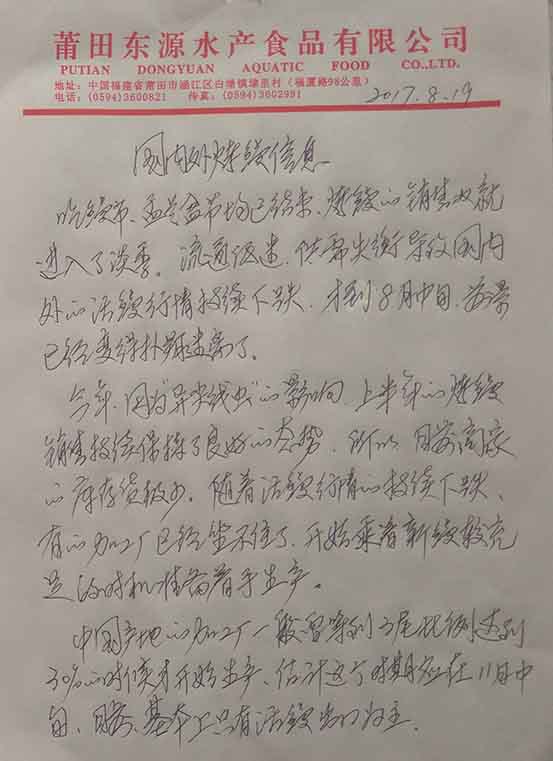 莆田东源水产食品有限公司
PUTIAN DONGYUAN AQUATIC FOOD CO.,LTD.
地址：中国福建省莆田市涵江区白塘镇埭里村（福厦路98公里）
电话：(0594)3600821 传真：(0594)3602991
2017.8.19
国内外烤鳗信息
吃鳗节、盂兰盆节均已结束、烤鳗的销售也就
进入了淡季。流通低迷、供需失衡导致国内
外的活鳗行情持续下跌，才到8月中旬，前景
已经变得扑朔迷离了。
今年，因为"异尖线虫"的影响，上半年的烤鳗
销售持续保持了良好的态势，所以，目前商家
的库存货极少。随着活鳗行情的持续下跌、
有的加工厂已经坐不住了，开始乘着新鳗较充
足的时机准备着手生产。
中国产地的加工厂一般留等到3尾比例达到
30%的时候才开始生产、估计这个时期应在11月中
旬，目前、基本上只有活鳗出口为主。